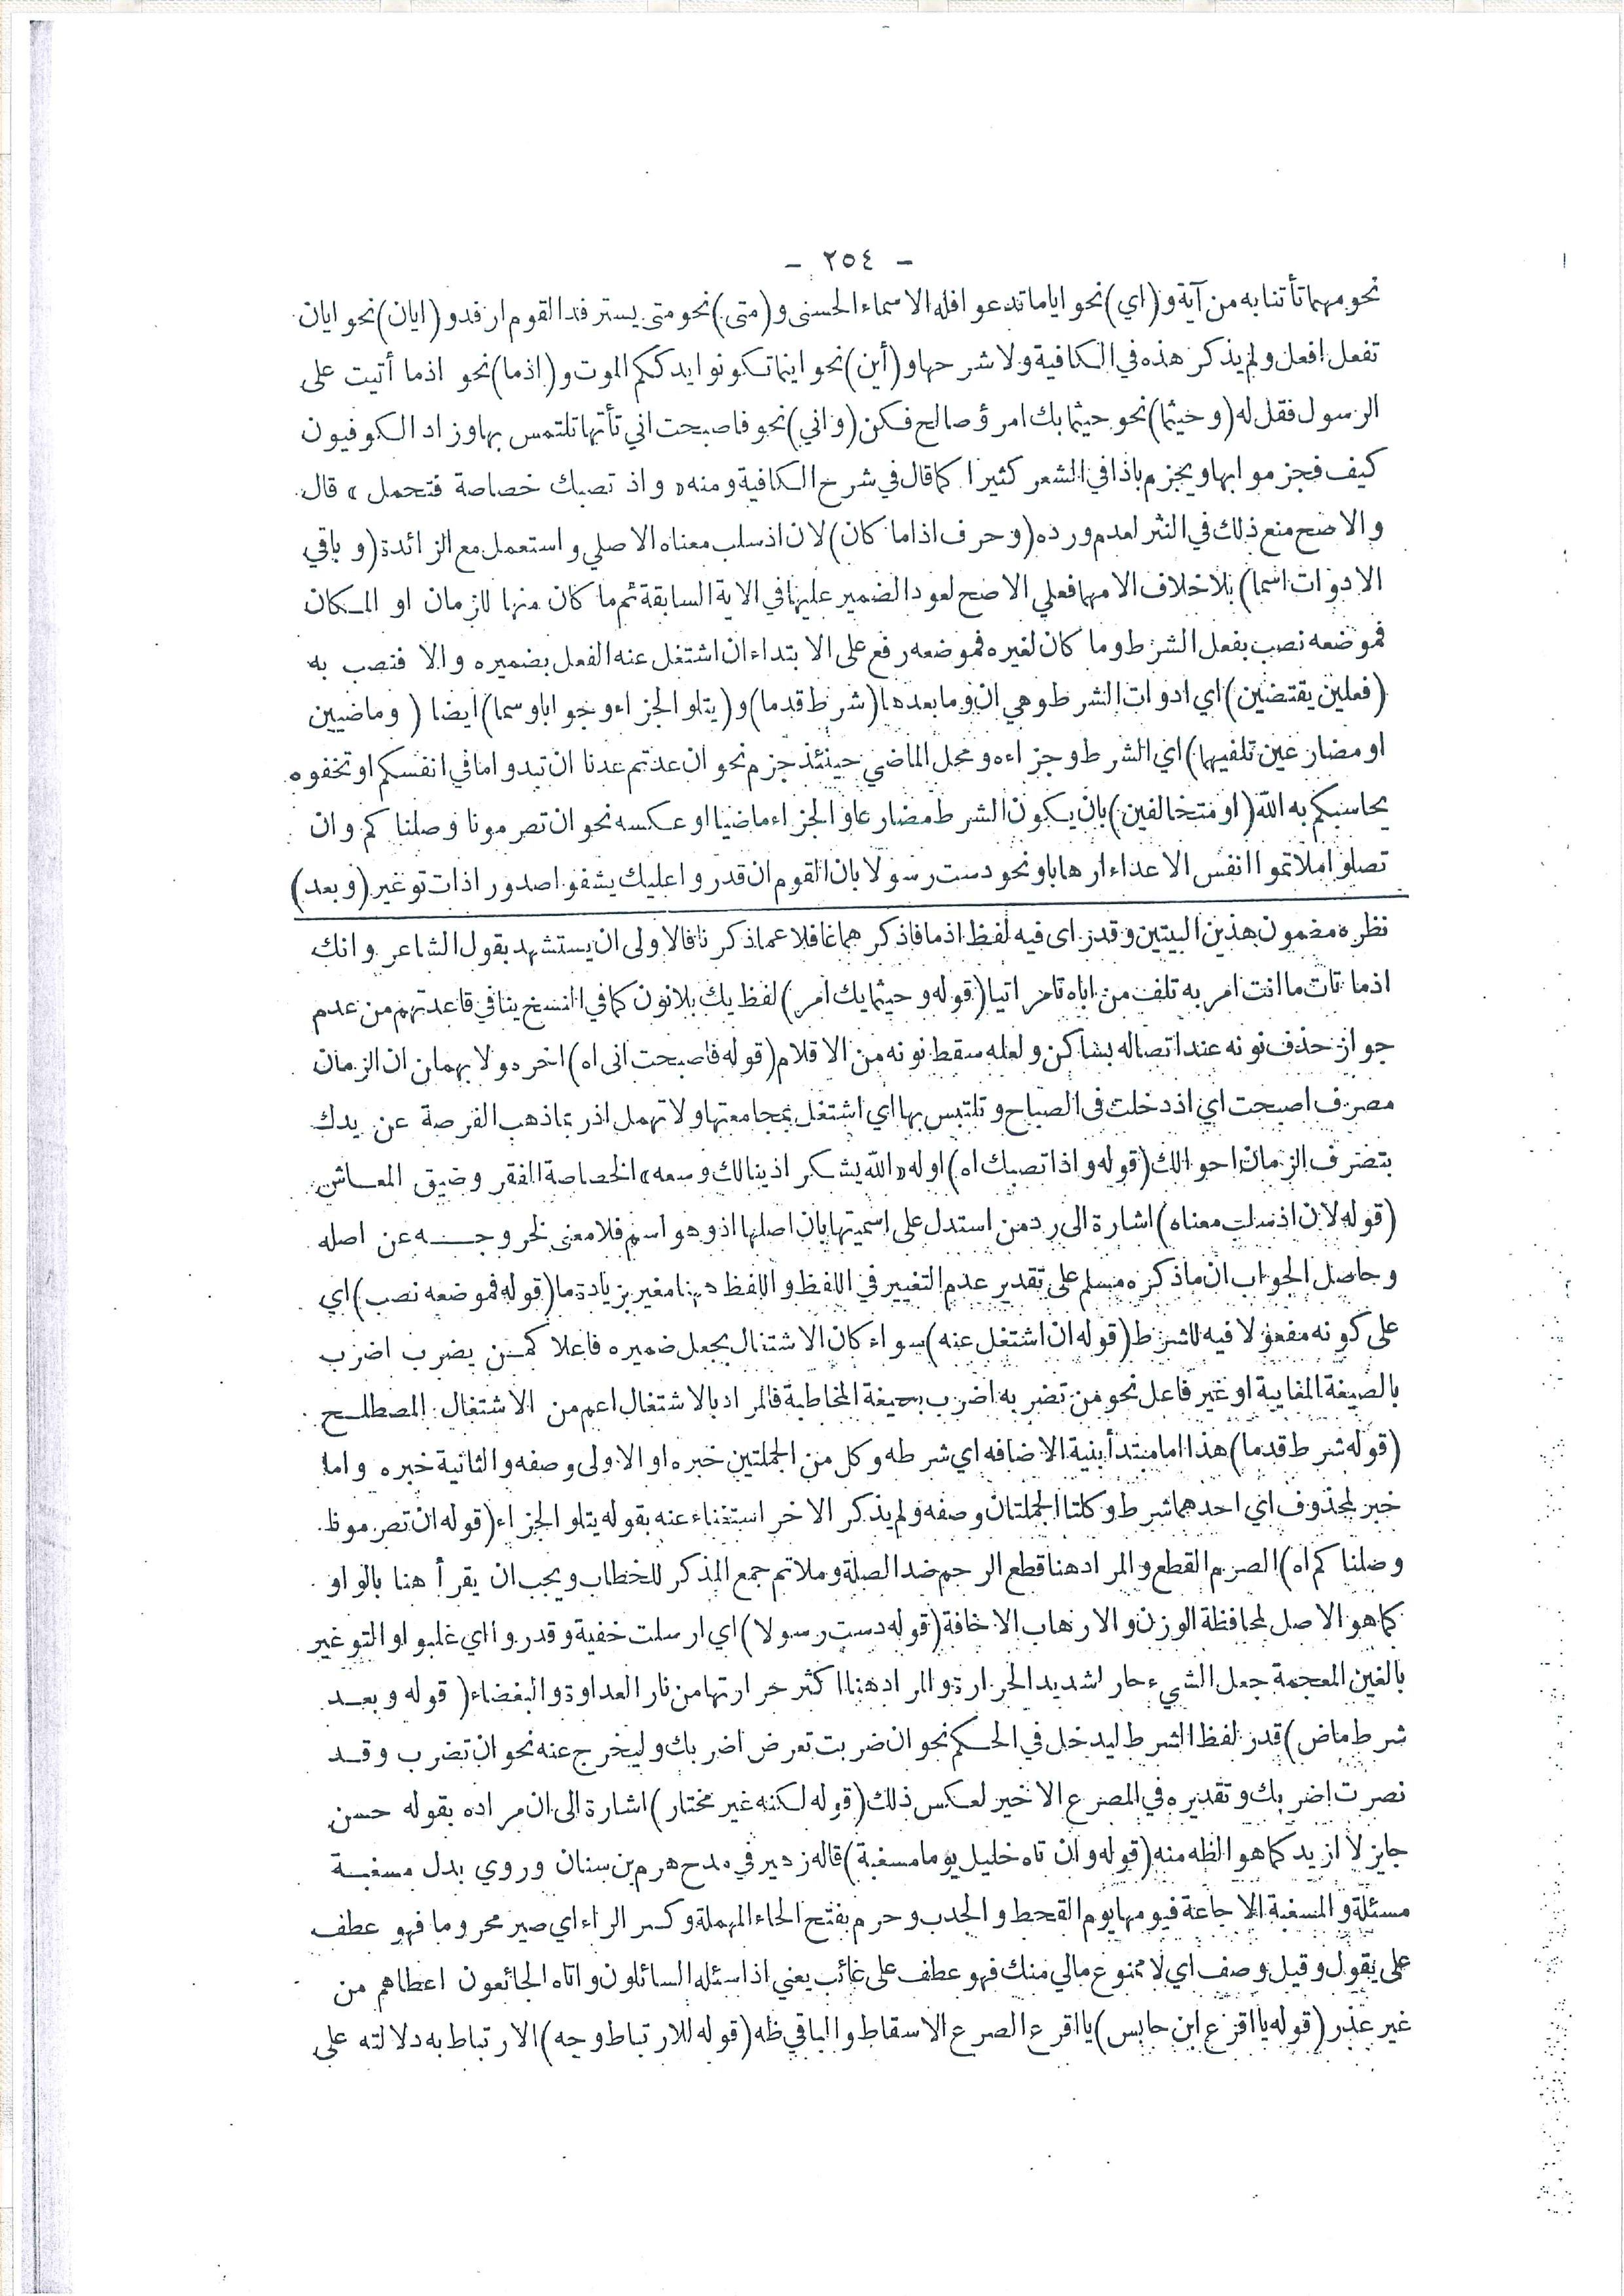 - ٢٥٤ -
نحو مهما تأتنا به من آية و (اي) نحو اياما تدعوا فله الاسماء الحسنى و (متى) نحو متى يسترفد القوم ارفد و (ايان) نحو ايان
تفعل افعل ولم يذكر هذه في الكافية ولا شرحها و (أين) نحو اينما تكونوا يدرككم الموت و (اذما) نحو اذما أتيت على
الرسول فقل له (وحيثما) نحو حيثما بك امرؤ صالح فكن (واني) نحو فاصبحت اني تأتها تلتمس بها وزاد الكوفيون
كيف فجزموا بها ويجزم باذا في الشعر كثيرا كما قال في شرح الكافية ومنه «واذ تصبك خصاصة فتحمل» قال
والاصح منع ذلك في النثر لعدم ورده (وحرف اذاما كان) لان اذ سلب معناه الاصلي واستعمل مع الزائدة (وباقي
الادوات اسما) بلا خلاف الا مهما فعلي الاصح لعود الضمير عليها في الاية السابقة ثم ما كان منها للزمان او المكان
فموضعه نصب بفعل الشرط وما كان لغيره فموضعه رفع على الابتداء ان اشتغل عنه الفعل بضميره والا فنصب به
(فعلين يقتضين) اي ادوات الشرط وهي ان وما بعدها (شرط قدما) و (يتلو الجزاء وجوابا وسما) ايضا (وماضيين
او مضارعين تلفيهما) اي الشرط وجزاءه ومحل الماضي حينئذ جزم نحو ان عدتم عدنا ان تبدوا ما في انفسكم او تخفوه
يحاسبكم به الله (او متخالفين) بان يكون الشرط مضارعا والجزاء ماضيا او عكسه نحو ان تصرمونا وصلناكم وان
تصلوا ملاتموا انفس الاعداء ارهابا ونحو دست رسولا بان القوم ان قدروا عليك يشفوا صدورا ذات توغير (وبعد)
نظره مضمون هذين البيتين وقدراى فيه لفظ اذما فاذكرهما غافلا عما ذكرنا فالاولى ان يستشهد بقول الشاعر وانك
اذما تات ما انت امر به تلف من اياه تامر اتيا (قوله وحيثما يك امر) لفظ يك بلا نون كما في النسخ ينافي قاعدتهم من عدم
جواز حذف نونه عند اتصاله بساكن ولعله سقط نونه من الاقلام (قوله فاصبحت انى اه) اخره ولا يهمان ان الزمان
مصرف اصبحت اي اذ دخلت فى الصباح وتلتبس بها اي اشتغل بمجامعتها ولا تهمل اذ ربما ذهب الفرصة عن يدك
بتصرف الزمان احوالك (قوله واذا تصبك اه) اوله «الله يشكر اذينالك وسعه» الخصاصة الفقر وضيق المعاش
(قوله لان اذ سلب معناه) اشارة الى رد من استدل على اسميتها بان اصلها اذ وهو اسم فلا معنى لخروجه عن اصله
وحاصل الجواب ان ما ذكره مسلم على تقدير عدم التغيير في اللفظ واللفظ هنا مغير بزيادة ما (قوله فموضعه نصب) اي
على كونه مفعولا فيه للشرط (قوله ان اشتغل عنه) سواء كان الاشتغال بجعل ضميره فاعلا كمن يضرب اضرب
بالصيغة المغايبة او غير فاعل نحو من تضربه اضرب بصيغة المخاطبة فالمراد بالاشتغال اعم من الاشتغال المصطلح
(قوله شرط قدما) هذا اما مبتدأ بنية الاضافه اي شرطه وكل من الجملتين خبره او الاولى وصفه والثانية خبره واما
خبر لمحذوف اي احدهما شرط وكلتا الجملتان وصفه ولم يذكر الاخر استغناء عنه بقوله يتلو الجزاء (قوله ان تصرمونا
وصلناكم اه) الصرم القطع والمراد هنا قطع الرحم ضد الصلة وملاتم جمع المذكر للخطاب ويجب ان يقرأ هنا بالواو
كما هو الاصل لمحافظة الوزن والارهاب الاخافة (قوله دست رسولا) اي ارسلت خفية وقدروا اي غلبوا والتوغير
بالغين المعجمة جعل الشيء حار لشديد الحرارة والمراد هنا اكثر حرارتها من نار العداوة والبغضاء (قوله وبعد
شرط ماض) قدر لفظ الشرط ليدخل في الحكم نحو ان ضربت تعرض اضربك وليخرج عنه نحو ان تضرب وقد
نصرت اضربك وتقديره في المصرع الاخير لعكس ذلك (قوله لكنه غير مختار) اشارة الى ان مراده بقوله حسن
جايز لا ازيد كما هو الظه منه (قوله وان تاه خليل يوما مسغبة) قاله زهير في مدح هرم بن سنان وروي بدل مسغبة
مسئلة والمسغبة الاجاعة فيومها يوم القحط والجدب وحرم بفتح الحاء المهملة وكسر الراء اي صير محروما فهو عطف
على يقول وقيل وصف اي لا ممنوع مالي منك فهو عطف على غائب يعني اذا سئله السائلون واتاه الجائعون اعطاهم من
غير عذر (قوله يا اقرع ابن حابس) يا اقرع الصرع الاسقاط والباقي ظه (قوله للارتباط وجه) الارتباط به دلالته على